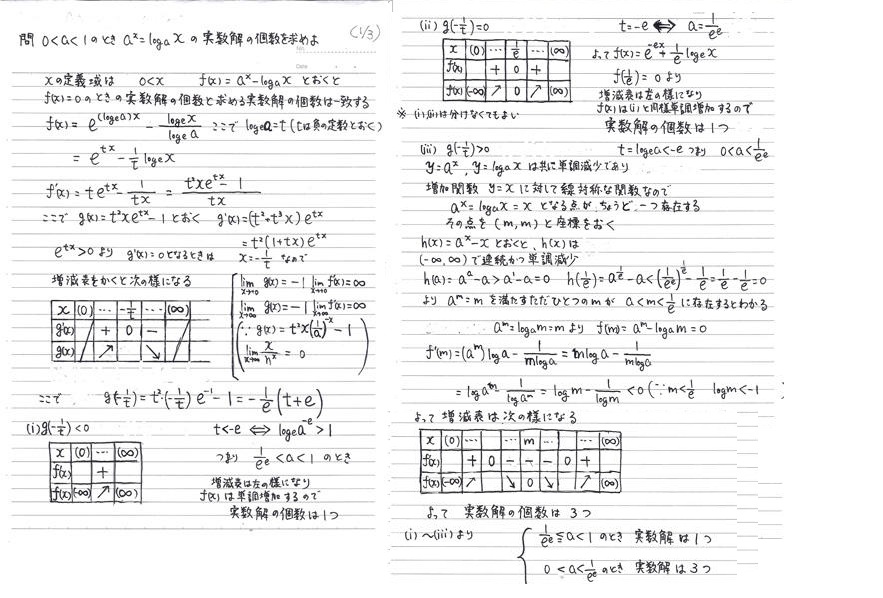 (1/3)
問 0<a<1のとき a^x=log_a x の実数解の個数を求めよ
No.
Date
xの定義域は 0<x f(x)=a^x-log_a x とおくと
f(x)=0のときの実数解の個数と求める実数解の個数は一致する
f(x)=e^{(log_e a)x}-\frac{log_e x}{log_e a} ここで log_e a=t (tは負の定数とおく)
=e^{tx}-\frac{1}{t}log_e x
f'(x)=te^{tx}-\frac{1}{tx}=\frac{t²xe^{tx}-1}{tx}
ここで g(x)=t²xe^{tx}-1とおく g'(x)=(t²+t³x)e^{tx}
=t²(1+tx)e^{tx}
e^{tx}>0より g'(x)=0となるときは x=-\frac{1}{t} なので
増減表をかくと次の様になる
lim_{x→+0} g(x)=-1 lim_{x→+0} f(x)=∞
lim_{x→∞} g(x)=-1 lim_{x→∞} f(x)=∞
(∵ g(x)=t²x(\frac{1}{a})^{-x}-1
lim_{x→∞} \frac{x}{h^x}=0 )
x (0) … -\frac{1}{t} … (∞)
g'(x) + 0 −
g(x) ↗ ↘
ここで g(-\frac{1}{t})=t²·(-\frac{1}{t})e^{-1}-1=-\frac{1}{e}(t+e)
(i) g(-\frac{1}{t})<0 t<-e ⇔ log_e a^{-e}>1
つまり \frac{1}{e^e}<a<1 のとき
x (0) … (∞)
f'(x) +
f(x) (-∞) ↗ (∞)
増減表は左の様になり
f(x)は単調増加するので
実数解の個数は1つ
(ii) g(-\frac{1}{t})=0 t=-e ⇔ a=\frac{1}{e^e}
x (0) … \frac{1}{e} … (∞)
f'(x) + 0 +
f(x) (-∞) ↗ 0 ↗ (∞)
よって f(x)=e^{-ex}+\frac{1}{e}log_e x
f(\frac{1}{e})=0 より
増減表は左の様になり
f(x)は(i)と同様単調増加するので
※ (i),(ii)は分けなくてもよい
実数解の個数は1つ
(iii) g(-\frac{1}{t})>0 t=log_e a<-e つまり 0<a<\frac{1}{e^e}
y=a^x, y=log_a x は共に単調減少であり
増加関数 y=x に対して線対称な関数なので
a^x=log_a x=x となる点が、ちょうど一つ存在する
その点を (m,m) と座標をおく
h(x)=a^x-x とおくと、h(x)は
(-∞,∞)で連続かつ単調減少
h(a)=a^a-a>a^1-a=0 h(\frac{1}{e})=a^{\frac{1}{e}}-a<(\frac{1}{e^e})^{\frac{1}{e}}-\frac{1}{e}=\frac{1}{e}-\frac{1}{e}=0
より a^m=m を満たすただひとつのmが a<m<\frac{1}{e}に存在するとわかる
a^m=log_a m=m より f(m)=a^m-log_a m=0
f'(m)=(a^m)log a-\frac{1}{m log a}=m log a-\frac{1}{m log a}
=log a^m-\frac{1}{log a^m}=log m-\frac{1}{log m}<0 (∵m<\frac{1}{e} log m<-1)
よって増減表は次の様になる
x (0) … … m … … (∞)
f'(x) + 0 − − − 0 +
f(x) (-∞) ↗ ↘ 0 ↘ ↗ (∞)
よって 実数解の個数は 3つ
(i)～(iii)より \frac{1}{e^e}≦a<1 のとき 実数解は1つ
0<a<\frac{1}{e^e} のとき 実数解は3つ